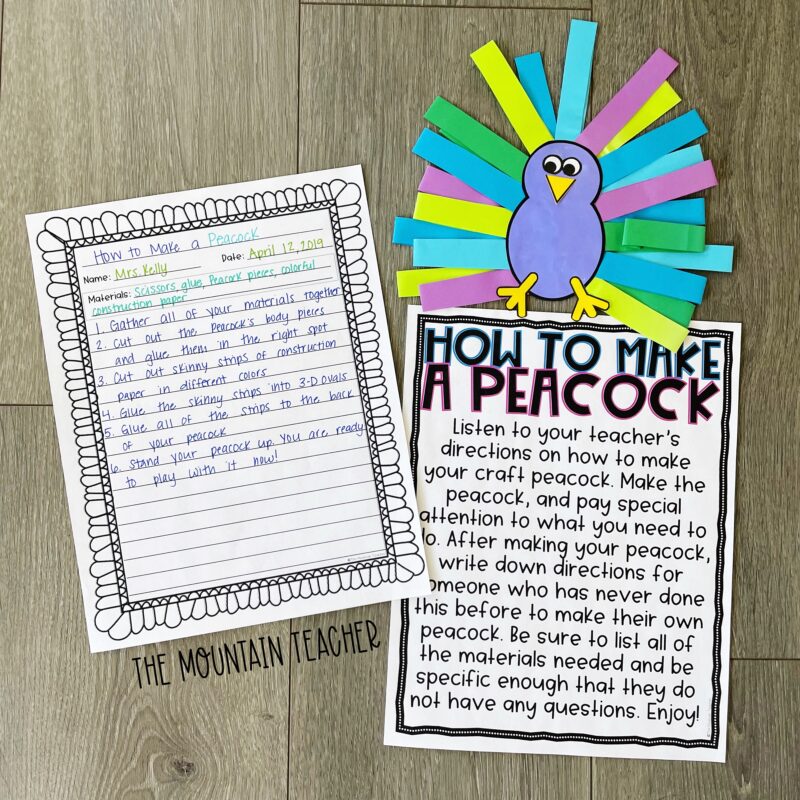 How to Make a Peacock
Name: Mrs. Kelly Date: April 12, 2019
Materials: Scissors, glue, Peacock pieces, colorful
construction paper
1. Gather all of your materials together
2. Cut out the Peacock's body pieces
and glue them in the right spot
3. Cut out skinny strips of construction
paper in different colors
4. Glue the skinny strips into 3-D ovals
5. Glue all of the strips to the back
of your peacock
6. Stand your peacock up. You are ready
to play with it now!
THE MOUNTAIN TEACHER
HOW TO MAKE
A PEACOCK
Listen to your teacher's
directions on how to make
your craft peacock. Make the
peacock, and pay special
attention to what you need to
do. After making your peacock,
write down directions for
someone who has never done
this before to make their own
peacock. Be sure to list all of
the materials needed and be
specific enough that they do
not have any questions. Enjoy!